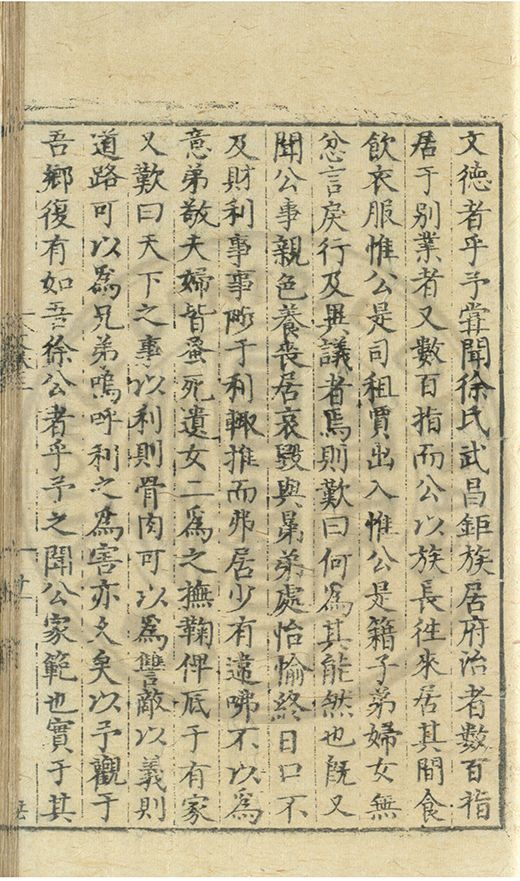 文德者乎予嘗聞徐氏武昌鉅族居府治者數百指
居于別業者又數百指而公以族長徃來居其間食
飲衣服惟公是司租賈出入惟公是籍子弟婦女無
忿言戾行及異議者焉則歎曰何爲其能然也旣又
聞公事親色養喪居哀毀與昻弟處怡愉終日口不
及財利事事䀶于利輙推而弗居少有違咈不以爲
意弟敬夫婦皆蚤死遺女二爲之撫鞠俾底于有家
又歎曰天下之事以利則骨肉可以爲讐敵以義則
道路可以爲兄弟嗚呼利之爲害亦久矣以予觀于
吾鄉復有如吾徐公者乎予之聞公家範也實于其